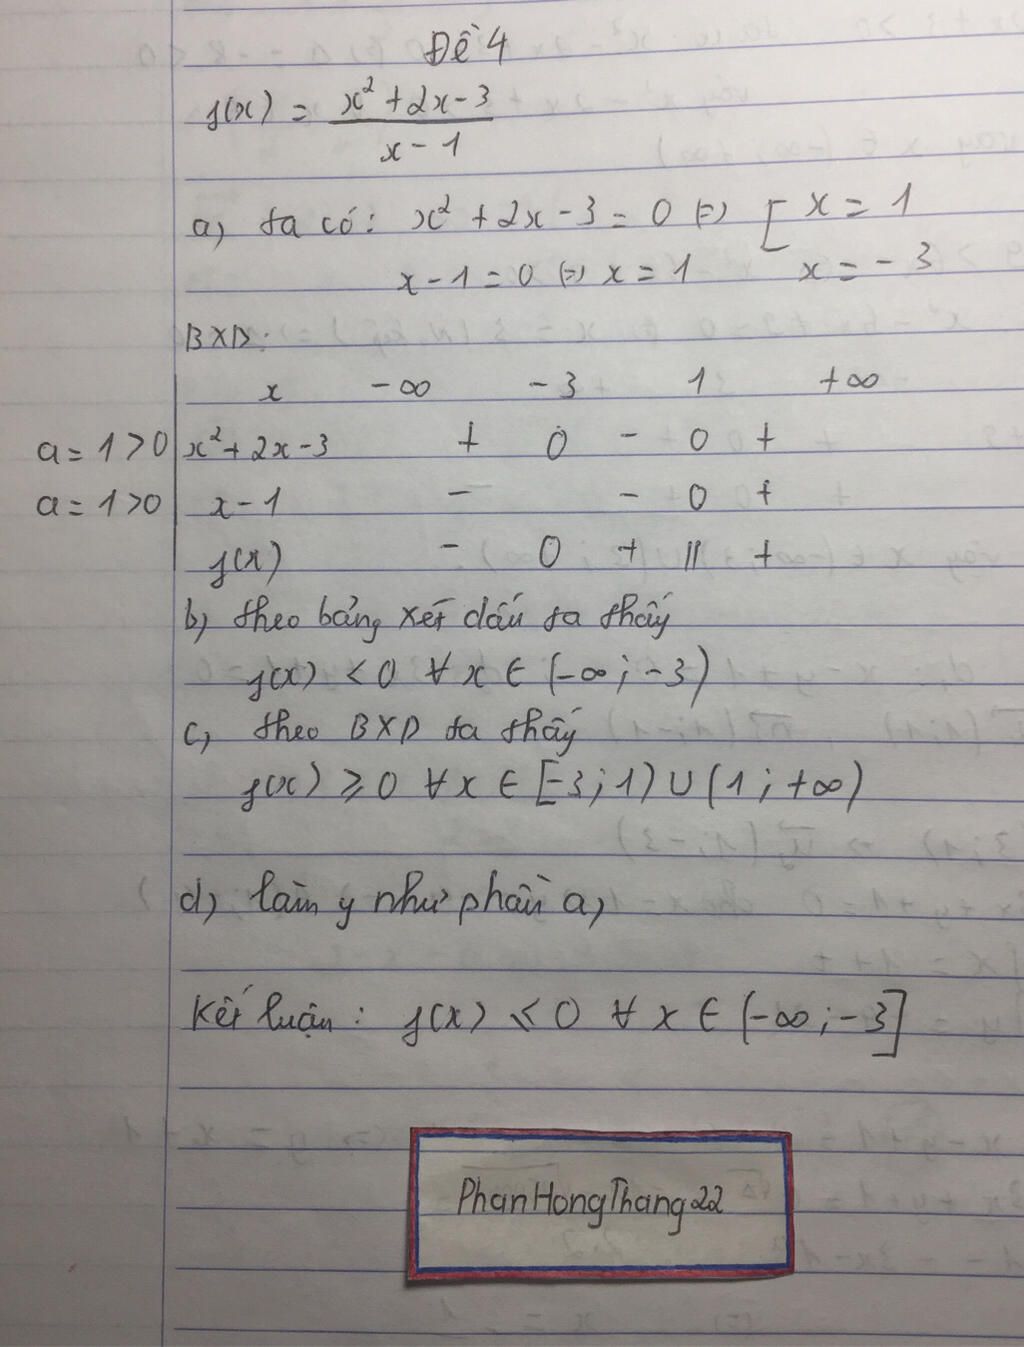 Đề 4
f(x) = x² + 2x - 3 / x - 1
a, ta có: x² + 2x - 3 = 0 (=) [ x = 1
x - 1 = 0 (=) x = 1 x = -3
BXD:
x -∞ -3 1 +∞
a = 1 > 0 x² + 2x - 3 + 0 - 0 +
a = 1 > 0 x - 1 - - 0 +
f(x) - 0 + || +
b, theo bảng xét dấu ta thấy
f(x) < 0 ∀ x ∈ (-∞ ; -3)
c, theo BXD ta thấy
f(x) ≥ 0 ∀ x ∈ [-3 ; 1) ∪ (1 ; +∞)
d, làm y như phần a,
Kết luận : f(x) ≤ 0 ∀ x ∈ (-∞ ; -3]
PhanHongThang22